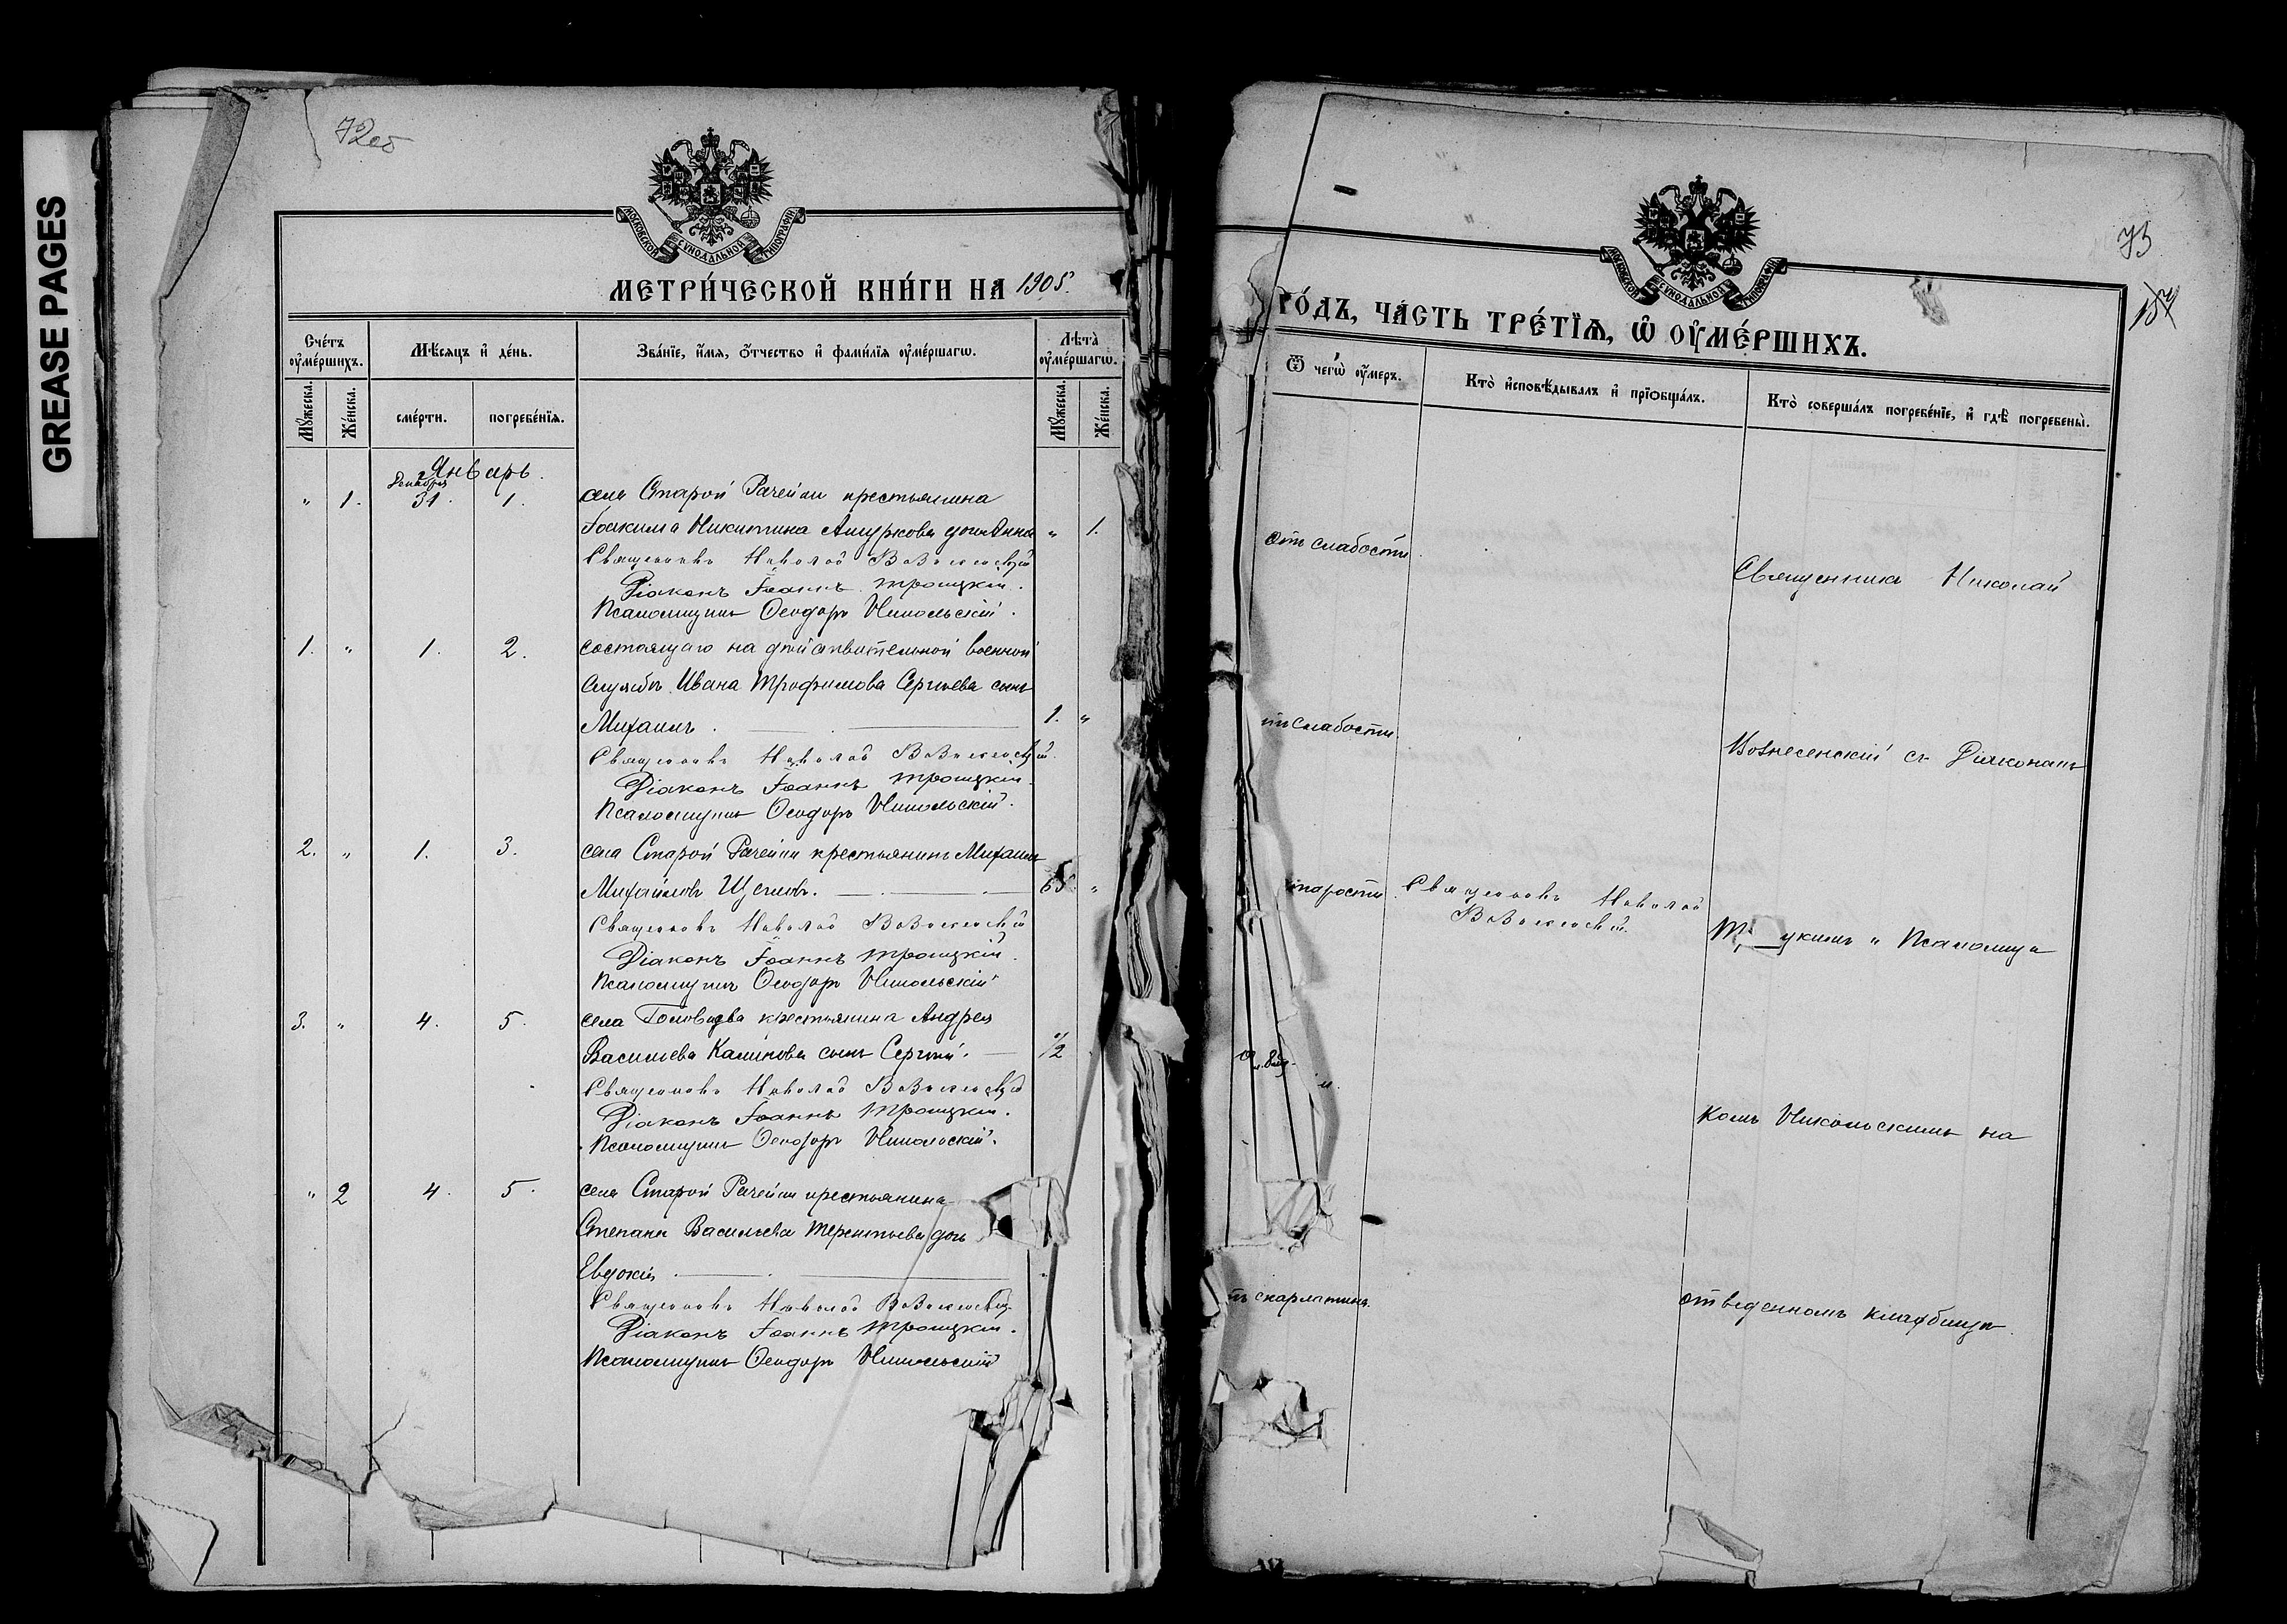 GREASE PAGES
72об
МОСКОВСКОЙ СѴНОДАЛЬНОЙ ТИПОГРАФІИ
МЕТРИ́ЧЕСКОЙ КНИ́ГИ НА 1905.
Сче́тъ ᲂу҆ме́ршихъ.
Мѣ́сяцъ и҆ де́нь.
Зва́нїе, и҆́мя, ѻ҆́тчество и҆ фами́лїя ᲂу҆ме́ршагѡ.
Лѣта̀ ᲂу҆ме́ршагѡ.
Мꙋ́жеска.
Же́нска.
сме́рти.
погребе́нїѧ.
Мꙋ́жеска.
Же́нска.
Январь.
Декабря
" 1. 31. 1. села Старой Рачейки крестьянина
Іоакима Никитина Ашуркова дочь Анна " 1.
Священникъ Николай Вознесенскій
Діаконъ Іоаннъ Троицкій.
Псаломщикъ Ѳеодоръ Никольскій.
1. " 1. 2. состоящаго на дѣйствительной военной
службѣ Ивана Трофимова Сергѣева сынъ
Михаилъ. 1. "
Священникъ Николай Вознесенскій.
Діаконъ Іоаннъ Троицкій.
Псаломщикъ Ѳеодоръ Никольскій.
2. " 1. 3. села Старой Рачейки крестьянинъ Михаилъ
Михайловъ 65 "
Священникъ Николай Вознесенскій
Діаконъ Іоаннъ Троицкій.
Псаломщикъ Ѳеодоръ Никольскій
3. " 4. 5. села крестьянина Андрея
Васильева Калинова сынъ Сергѣй. 1/2
Священникъ Николай Вознесенскій
Діаконъ Іоаннъ Троицкій.
Псаломщикъ Ѳеодоръ Никольскій.
" 2 4. 5. села Старой Рачейки крестьянина
Степана Васильева Терентьева дочь
Евдокія
Священникъ Николай Вознесенскій
Діаконъ Іоаннъ Троицкій.
Псаломщикъ Ѳеодоръ Никольскій
73
МОСКОВСКОЙ СѴНОДАЛЬНОЙ ТИПОГРАФІИ
ГО́ДЪ, ЧА́СТЬ ТРЕ́ТЇѦ, Ѡ҆ ОУ҆МЕ́РШИХЪ.
Ѿ чегѡ̀ ᲂу҆́меръ.
Кто̀ и҆сповѣ́дывалъ и҆ прїѻбща́лъ.
Кто̀ соверша́лъ погребе́нїе, и҆ гдѣ̀ погребены̀.
отъ слабости.
Священникъ Николай
тъ слабости
Вознесенскій съ Діакономъ
тарости.
Священникъ Николай
Вознесенскій.
Тр цкимъ и Псаломщи
комъ Никольскимъ на
тъ скарлатины.
отведенномъ кладбищѣ.